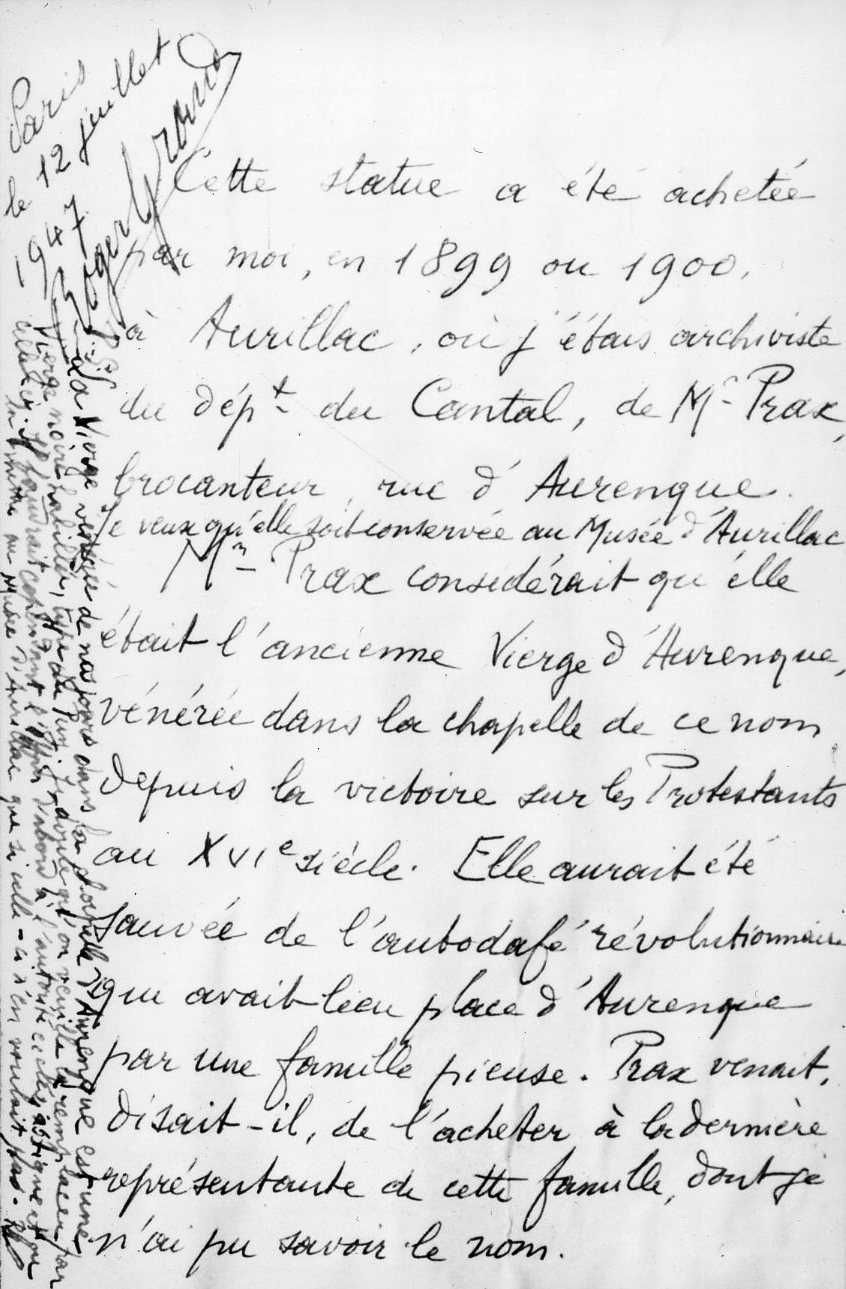 Paris
le 12 juillet
1947
Roger Grand
Cette statue a été achetée
par moi, en 1899 ou 1900,
à Aurillac, où j'étais archiviste
du dépt du Cantal, de Mr Prax,
brocanteur, rue d'Aurenque.
Je veux qu'elle soit conservée au Musée d'Aurillac
Mr Prax considérait qu'elle
était l'ancienne Vierge d'Aurenque,
vénérée dans la chapelle de ce nom
depuis la victoire sur les Protestants
au XVIe siècle. Elle aurait été
sauvée de l'autodafé révolutionnaire
qui avait lieu place d'Aurenque
par une famille pieuse. Prax venait,
disait-il, de l'acheter à la dernière
représentante de cette famille, dont je
n'ai pu savoir le nom.
La Vierge vénérée de nos jours dans la chapelle d'Aurenque est une
Vierge noire habillée, type du Puy. qu'on veuille la remplacer par
celle-ci. Il faudrait cependant l'offrir d'abord à l'autorité ecclésiastique et ne
la mettre au Musée d'Aurillac que si celle-ci n'en voulait pas.